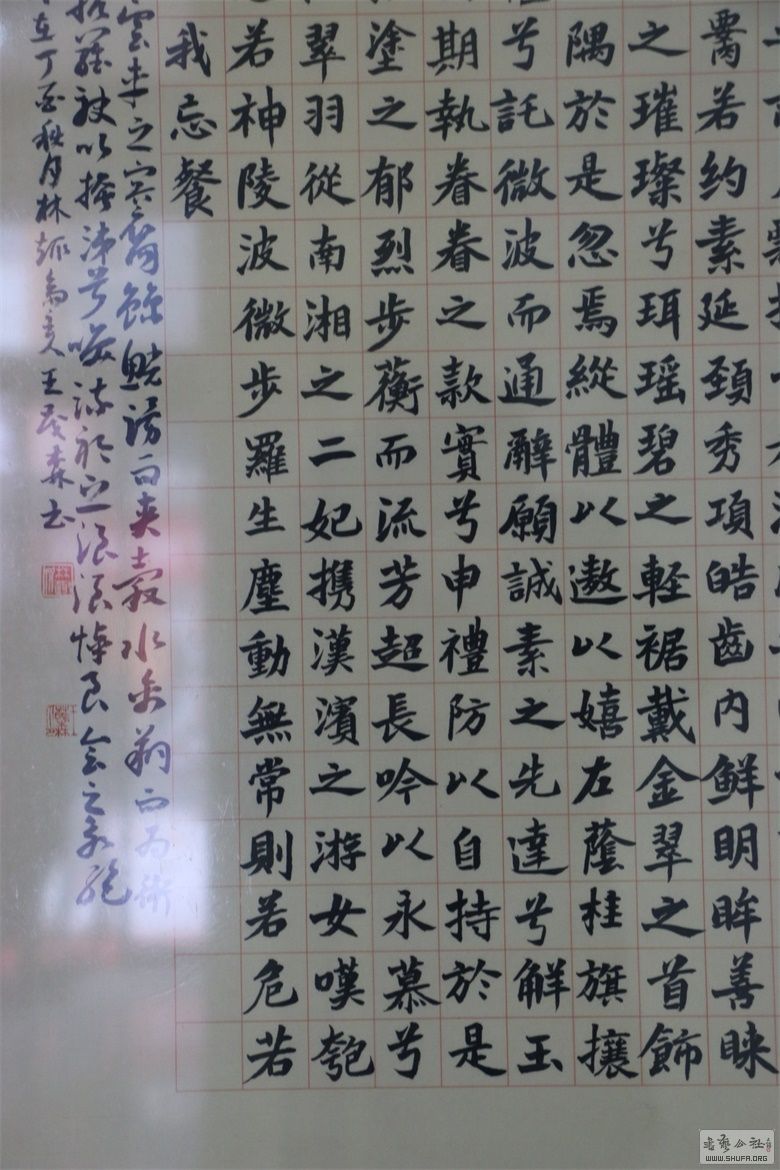 若约素延頚秀項皓齒内鮮明眸善睞
之璀璨兮珥瑶碧之軽裾戴金翠之首飾
隅於是忽焉縱體以遨以嬉左蔭桂旗攘
兮託微波而通辭願誠素之先達兮解玉
期執眷眷之款實兮申禮防以自持於是
塗之郁烈步蘅而流芳超長吟以永慕兮
翠羽從南湘之二妃携漢濱之游女嘆匏
若神陵波微步羅生塵動無常則若危若
我忘餐
水禽翔而为衛
袂以掩涕兮 浪浪悼良会之永絶
丁酉秋月林 王茂森书
WWW.SHUFA.ORG